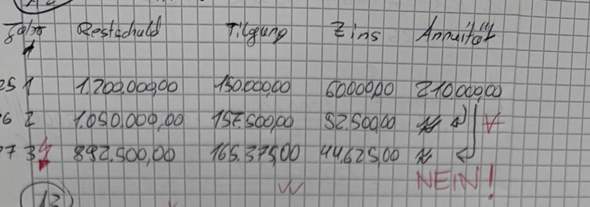 Jahr Restschuld Tilgung Zins Annuität
25 1 1.200.000,00 150.000,00 60.000,00 210.000,00
26 2 1.050.000,00 157.500,00 52.500,00
27 3 892.500,00 165.375,00 44.625,00
NEIN!
13